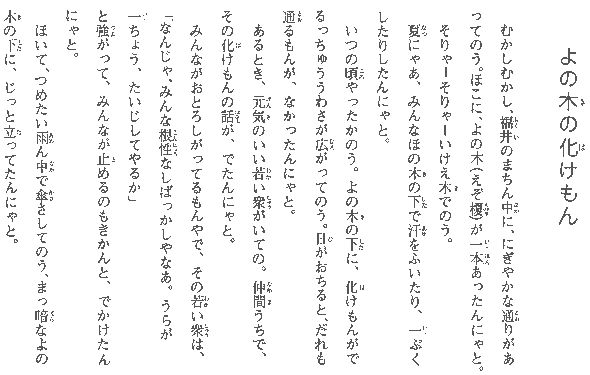 よの木の化けもん
むかしむかし、福井のまちん中に、にぎやかな通りがあ
ってのう。ほこに、よの木(えぞ榎)が一本あったんにゃと。
そりゃーそりゃーいけえ木でのう。
夏にゃあ、みんなほの木の下で汗をふいたり、一ぷく
したりしたんにゃと。
いつの頃やったかのう。よの木の下に、化けもんがで
るっちゅううわさが広がってのう。日がおちると、だれも
通るもんが、なかったんにゃと。
あるとき、元気のいい若い衆がいての。仲間うちで、
その化けもんの話が、でたんにゃと。
みんながおとろしがってるもんやで、その若い衆は、
「なんじゃ、みんな根性なしばっかしやなあ。うらが
一ちょう、たいじしてやるか」
と強がって、みんなが止めるのもきかんと、でかけたん
にゃと。
ほいて、つめたい雨ん中で傘さしてのう、まっ暗なよの
木の下に、じっと立ってたんにゃと。